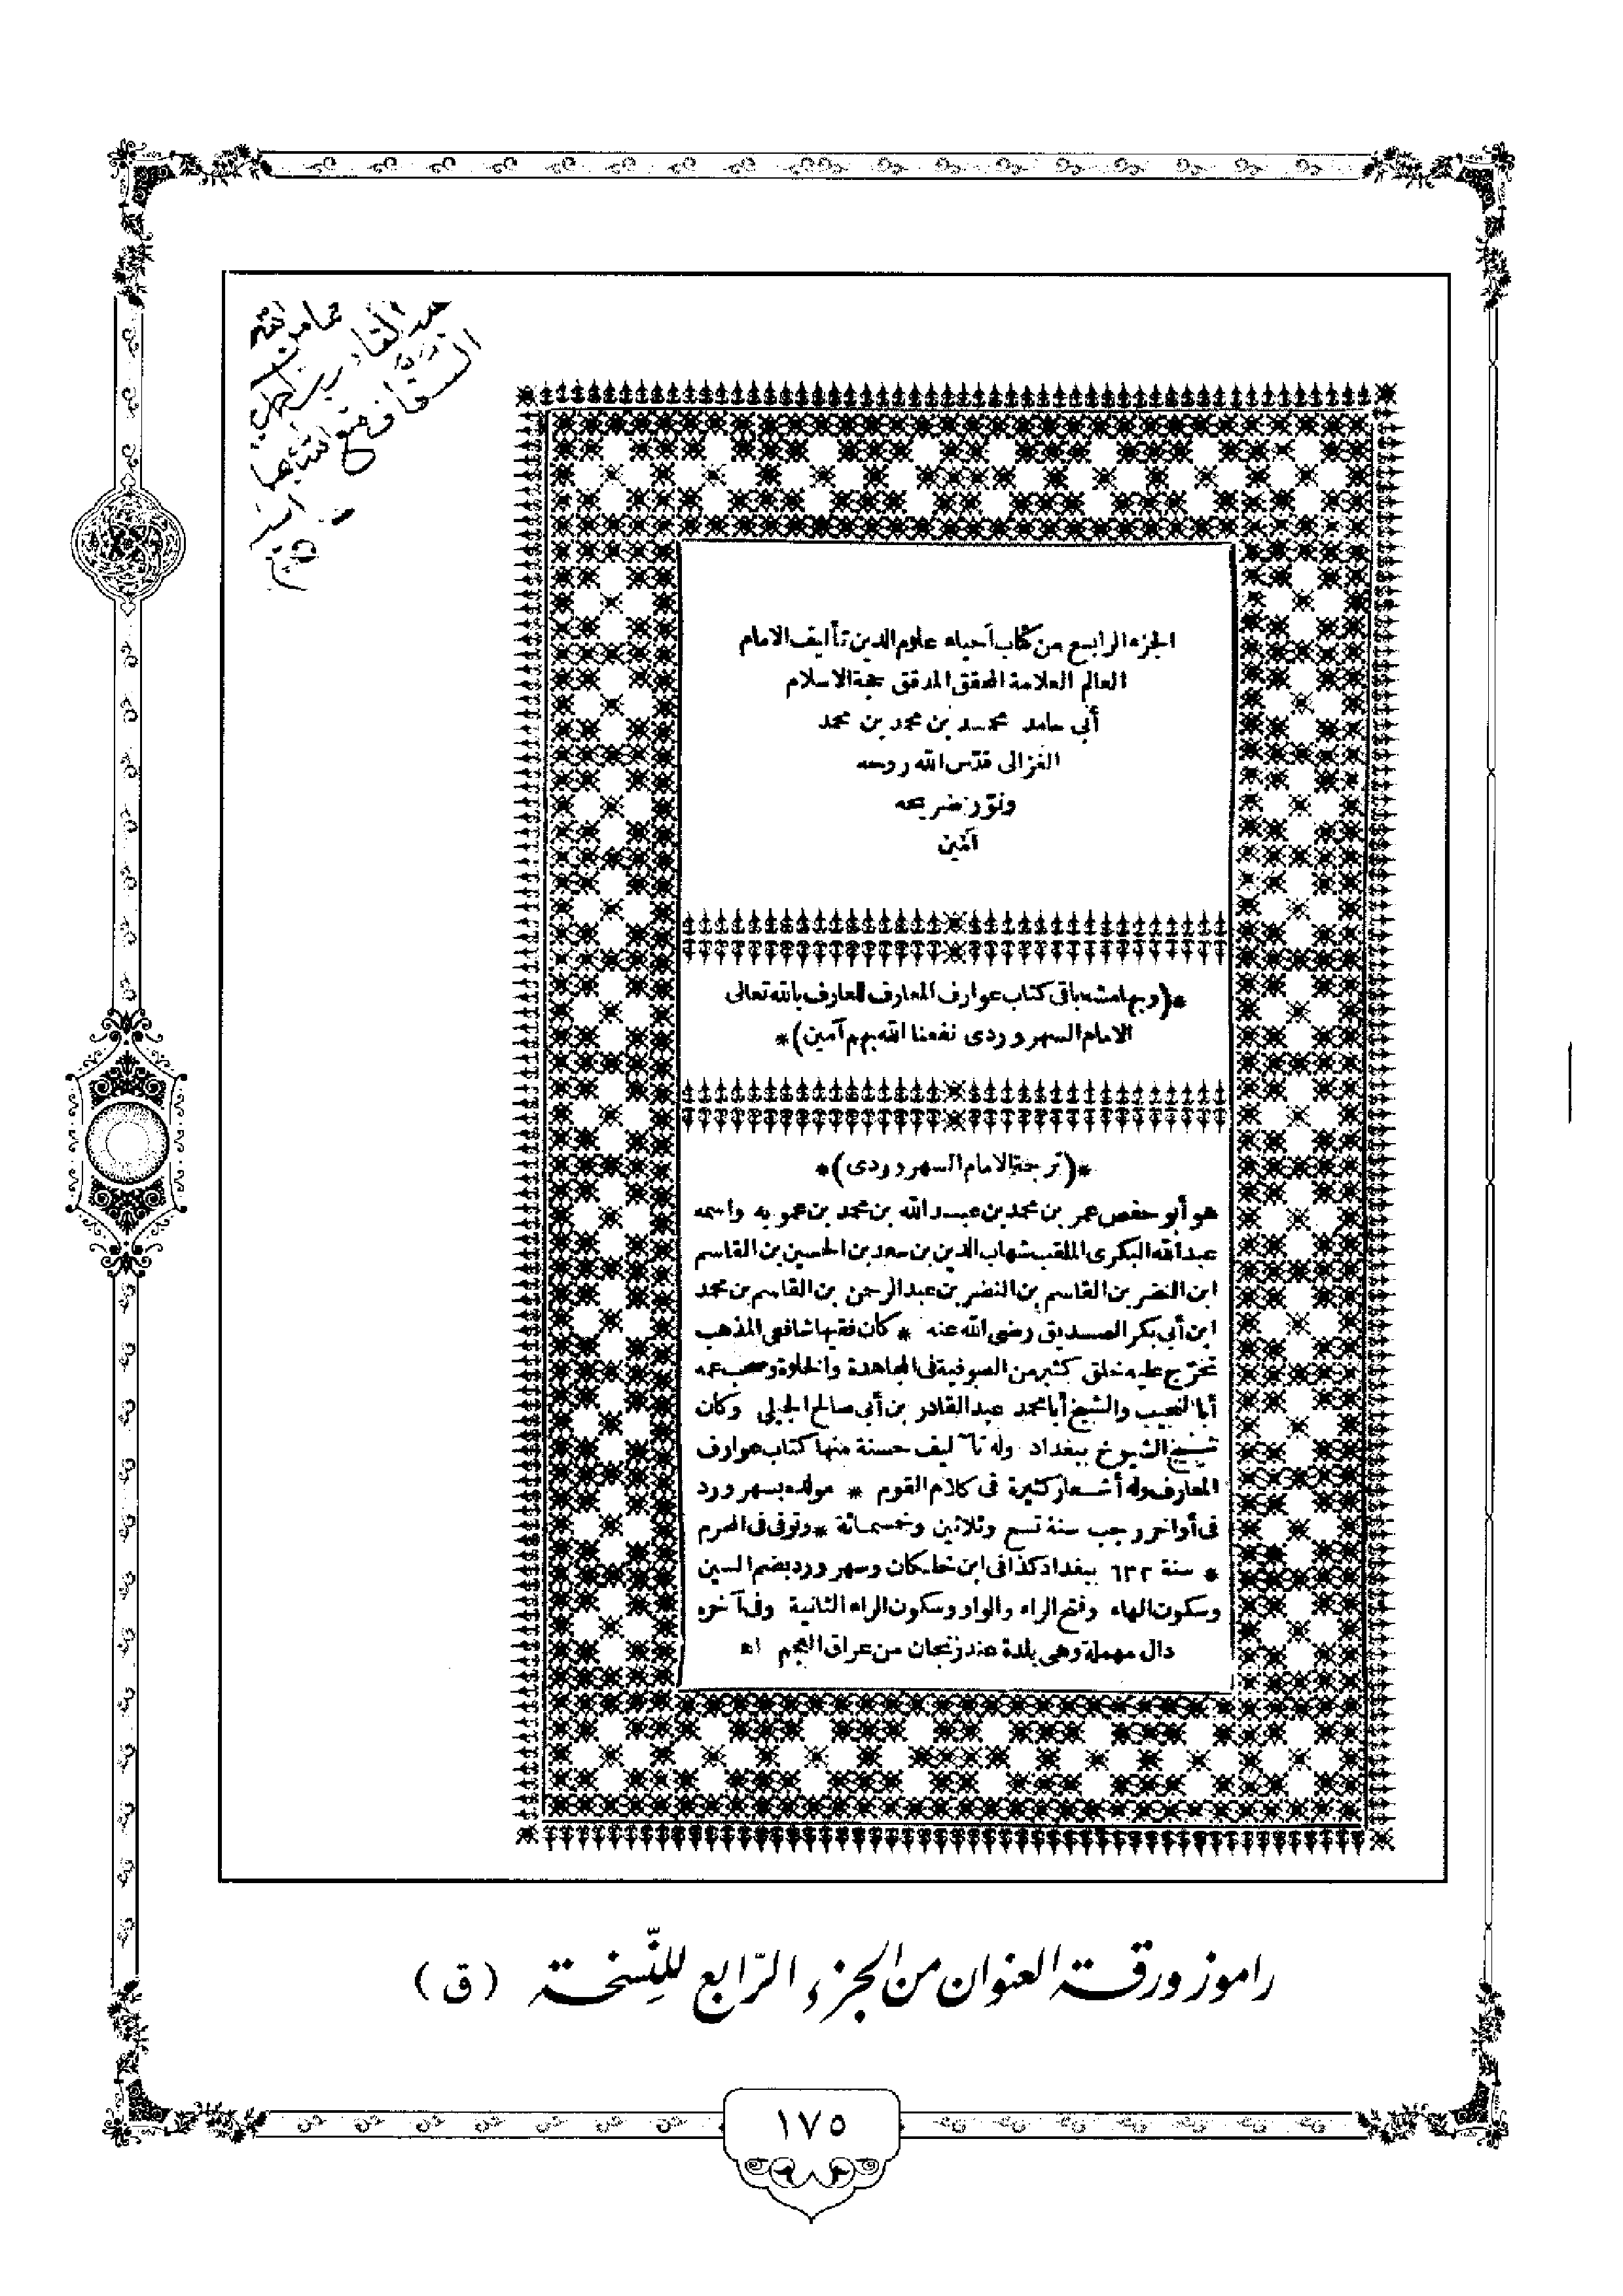 الجزء الرابع من كتاب احياء علوم الدين تأليف الامام
العالم العلامة المحقق المدقق حجة الاسلام
أبى حامد محمد بن محمد بن محمد
الغزالى قدّس الله روحه
ونوّر ضريحه
آمين
*(وبهامشه باقى كتاب عوارف المعارف للعارف بالله تعالى
الامام السهروردى نفعنا الله بهم آمين)*
*(ترجمة الامام السهروردى)*
هو أبو حفص عمر بن محمد بن عبد الله بن محمد بن عمويه واسمه
عبد الله البكرى الملقب شهاب الدين بن سعد بن الحسين بن القاسم
ابن النضر بن القاسم بن النضر بن عبد الرحمن بن القاسم بن محمد
ابن أبى بكر الصديق رضى الله عنه * كان فقيها شافعى المذهب
تخرّج عليه خلق كثير من الصوفية فى المجاهدة والخلوة وصحب عمه
أبا النجيب والشيخ أبا محمد عبد القادر بن أبى صالح الجيلى وكان
شيخ الشيوخ ببغداد وله تآليف حسنة منها كتاب عوارف
المعارف وله أشعار كثيرة فى كلام القوم * مولده بسهرورد
فى أواخر رجب سنة تسع وثلاثين وخمسمائة * وتوفى فى المحرم
* سنة ٦٣٢ ببغداد كذا فى ابن خلكان وسهرورد بضم السين
وسكون الهاء وفتح الراء والواو وسكون الراء الثانية وفى آخره
دال مهملة وهى بلدة عند زنجان من عراق العجم اه
راموز ورقة العنوان من الجزء الرّابع للنّسخة (ق)
١٧٥